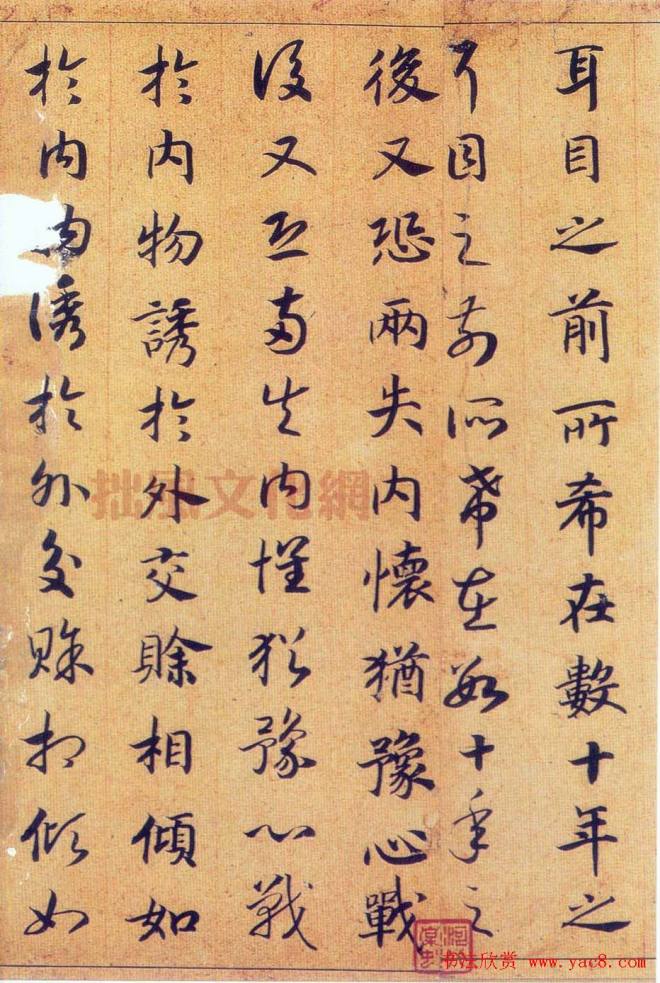 耳目之前所希在數十年之
耳目之前所希在數十年之
後又恐兩失內懷猶豫心戰
後又恐兩失內懷猶豫心戰
於內物誘於外交賒相傾如
於內物誘於外交賒相傾如
拙風文化網
书法欣赏 www.yac8.com